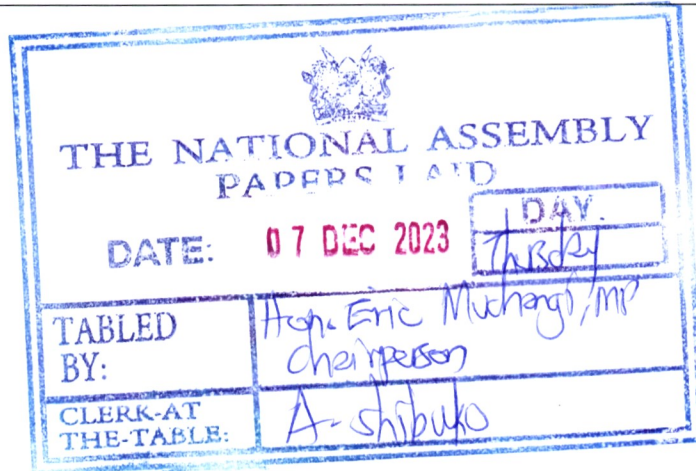 THE NATIONAL ASSEMBLY
PAPERS LAID
DATE: 07 DEC 2023
DAY.
Thursday
TABLED BY:
Hon. Eric Muchangi, MP
Chairperson
CLERK-AT THE-TABLE:
A. Shibuko